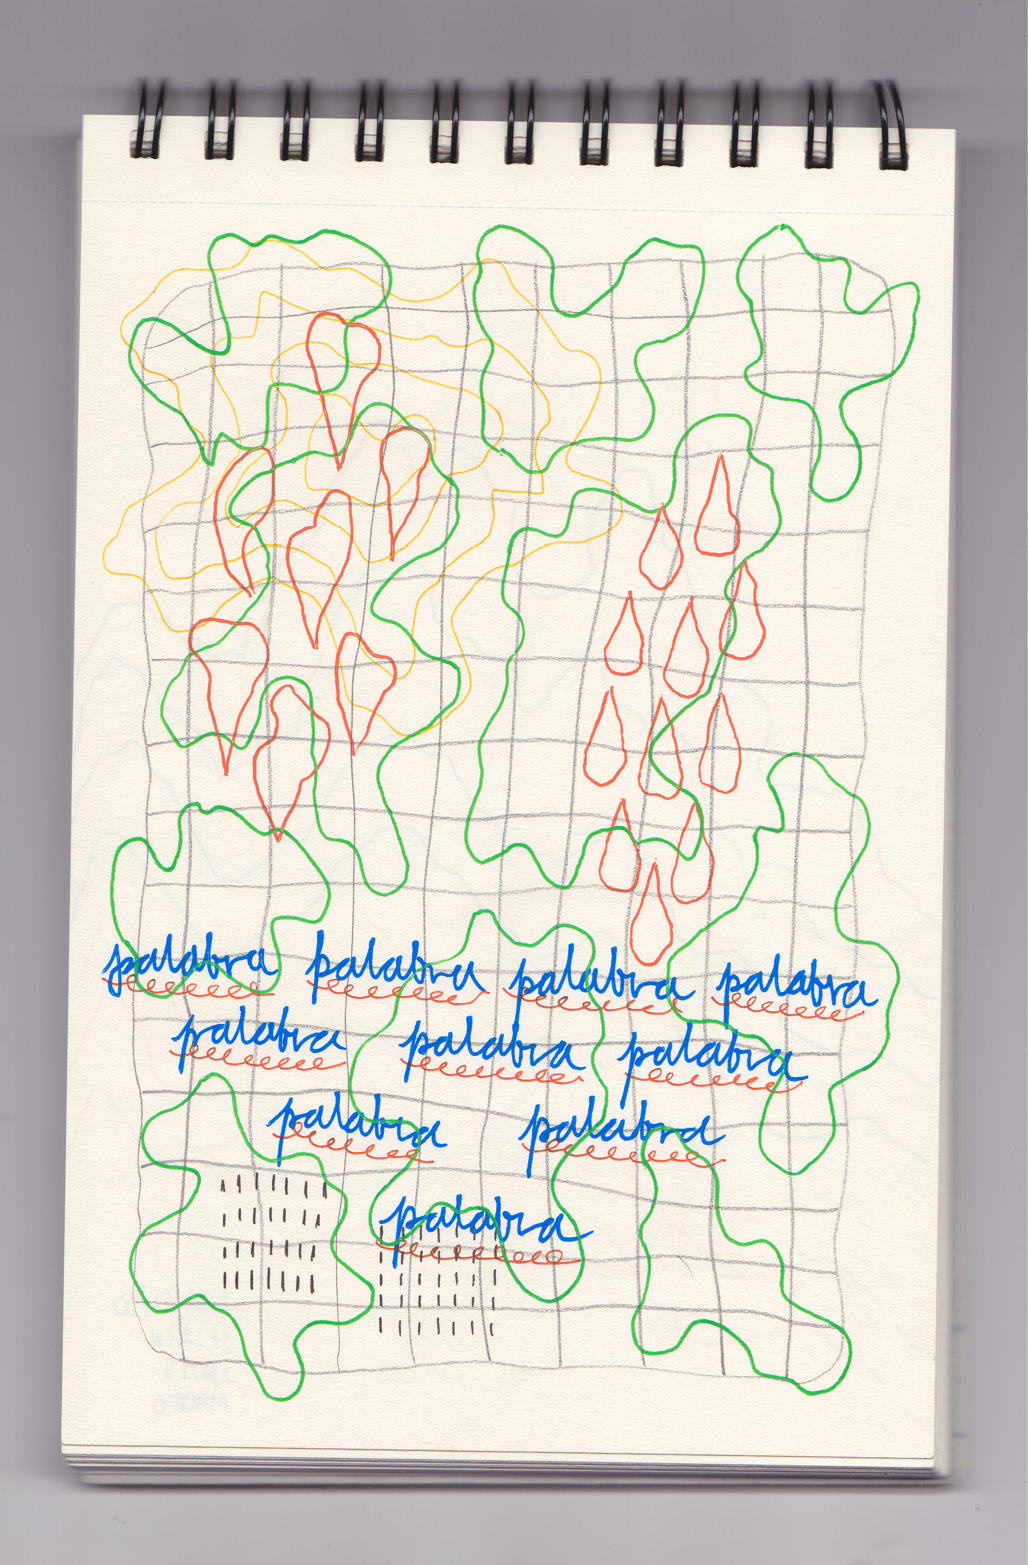 palabra palabra palabra palabra
palabra palabra palabra
palabra palabra
palabra